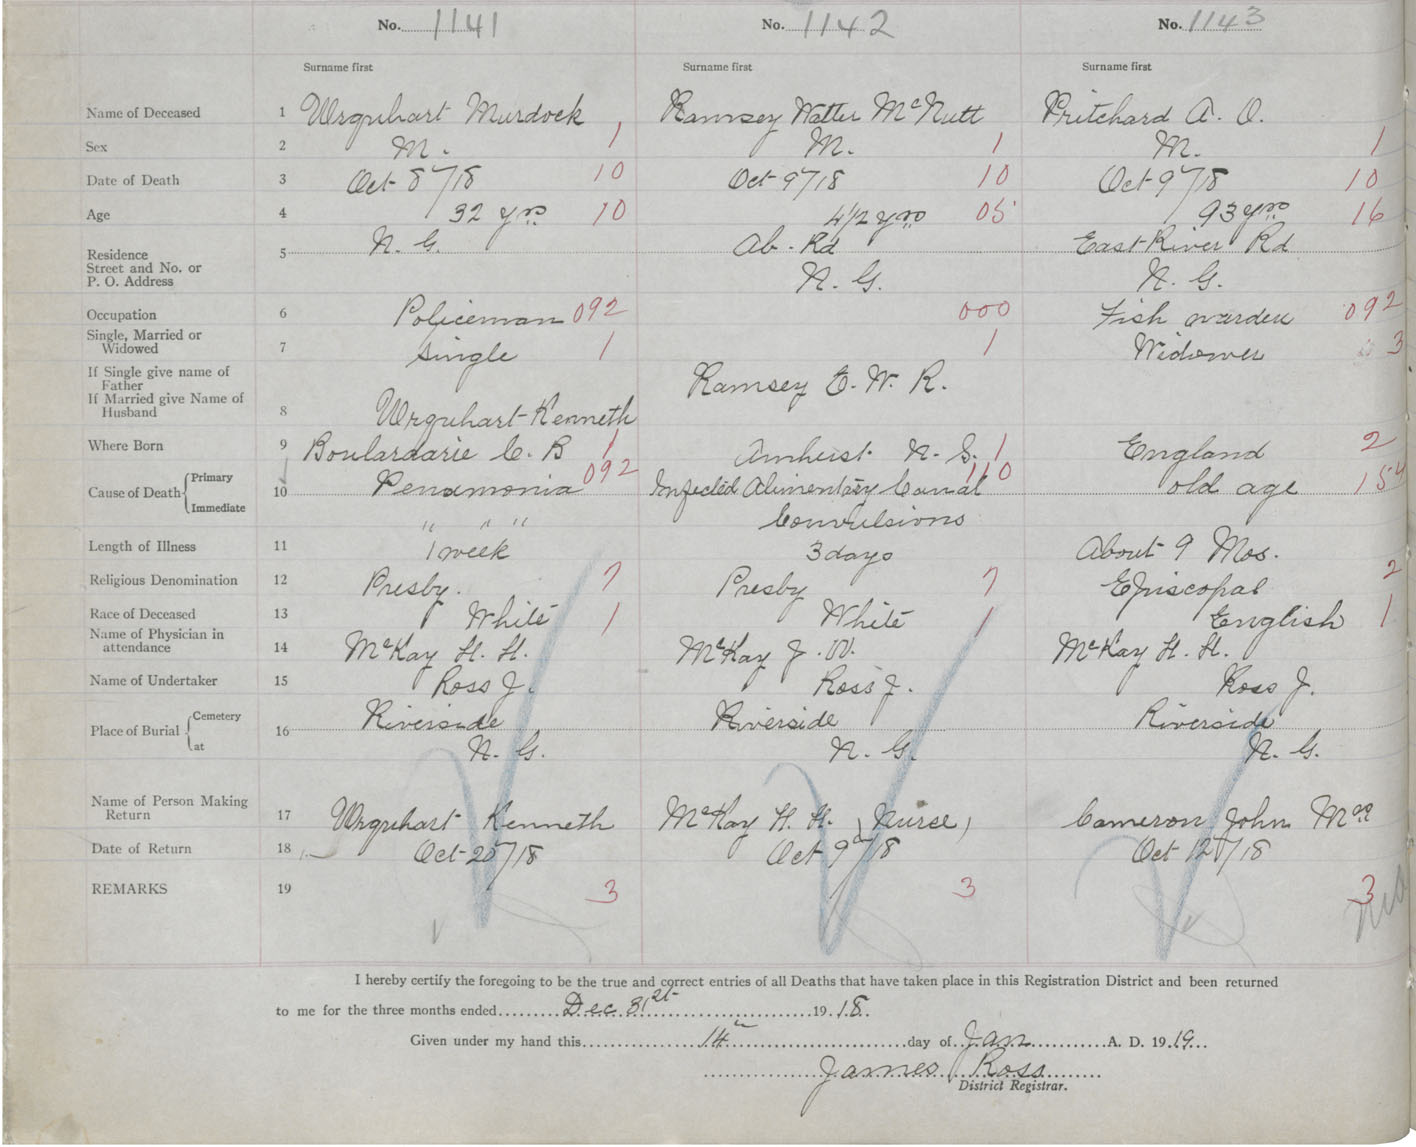 No. 1141 No. 1142 No. 1143
Surname first Surname first Surname first
Name of Deceased 1 Urquhart Murdock Ramsey Walter McNutt Pritchard A. O.
Sex 2 M. 1 M. 1 M. 1
Date of Death 3 Oct 8"/18 10 Oct 9"/18 10 Oct 9"/18 10
Age 4 32 yrs 10 4 1/2 yrs 05 93 yrs 16
Residence 5 N. G. Ab. Rd East River Rd
Street and No. or
P. O. Address N. G. N. G.
Occupation 6 Policeman 092 000 Fish warden 092
Single, Married or
Widowed 7 Single 1 1 Widower 3
If Single give name of
Father Ramsey E. W. R.
If Married give Name of
Husband 8 Urquhart Kenneth
Where Born 9 Boulardarie C. B 1 Amherst N. S. 1 England 2
Cause of Death Primary 10 Penumonia 092 Infected Alimentary Canal 110 old age 154
Immediate " " " Convulsions
Length of Illness 11 1 week 3 days About 9 Mos.
Religious Denomination 12 Presby. 7 Presby 7 Episcopal 2
Race of Deceased 13 White 1 White 1 English 1
Name of Physician in
attendance 14 McKay H. H. McKay J. W. McKay H. H.
Name of Undertaker 15 Ross J. Ross J. Ross J.
Place of Burial Cemetery 16 Riverside Riverside Riverside
at N. G. N. G. N. G.
Name of Person Making
Return 17 Urquhart Kenneth McKay H. H. (Nurse) Cameron John Mrs
Date of Return 18 Oct 25"/18 Oct 9th/18 Oct 12"/18
REMARKS 19 3 3 3
I hereby certify the foregoing to be the true and correct entries of all Deaths that have taken place in this Registration District and been returned
to me for the three months ended Dec 31st 1918.
Given under my hand this 14th day of Jan A. D. 1919
James Ross
District Registrar.